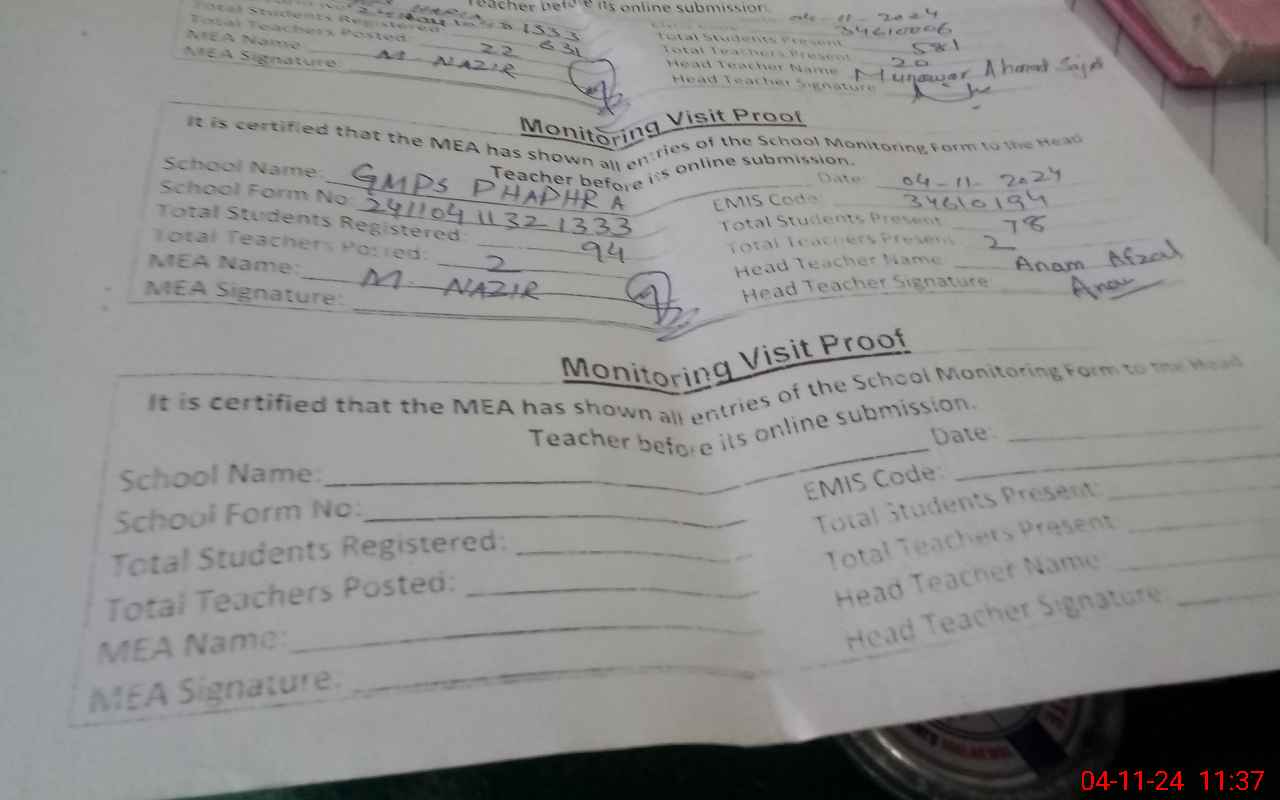 Teacher before its online submission.
Total Students Registered: 631
Total Teachers Posted: 22
MEA Name: M. NAZIR
MEA Signature:
04-11-2024
34610006
Total Students Present 581
Total Teachers Present 20
Head Teacher Name Munawar Ahmad Sajid
Head Teacher Signature
Monitoring Visit Proof
It is certified that the MEA has shown all entries of the School Monitoring Form to the Head
Teacher before its online submission.
School Name: GMPS PHADHRA
School Form No: 241104 1132 1333
Total Students Registered: 94
Total Teachers Posted: 2
MEA Name: M. NAZIR
MEA Signature:
Date: 04-11-2024
EMIS Code: 34610194
Total Students Present 78
Total Teachers Present 2
Head Teacher Name Anam Afzal
Head Teacher Signature Anam
Monitoring Visit Proof
It is certified that the MEA has shown all entries of the School Monitoring Form to the Head
Teacher before its online submission.
School Name:
School Form No:
Total Students Registered:
Total Teachers Posted:
MEA Name:
MEA Signature:
Date:
EMIS Code:
Total Students Present:
Total Teachers Present:
Head Teacher Name:
Head Teacher Signature:
04-11-24 11:37